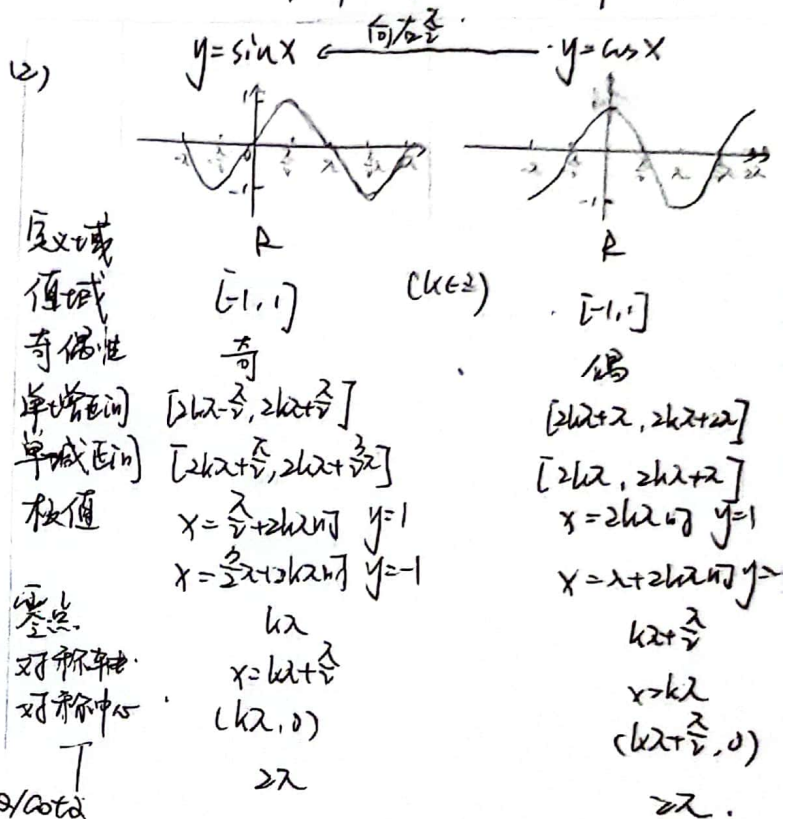 (2) y=sinx ← 向右π/2 y=cosx
1 1
-π -π/2 0 π/2 π 3/2π 2π -π -π/2 π/2 π 3/2π 2π
-1 -1
定义域 R R
值域 [-1,1] (k∈Z) [-1,1]
奇偶性 奇 偶
单增区间 [2kπ-π/2, 2kπ+π/2] [2kπ+π, 2kπ+2π]
单减区间 [2kπ+π/2, 2kπ+3/2π] [2kπ, 2kπ+π]
极值 x=π/2+2kπ时 y=1 x=2kπ时 y=1
x=3/2π+2kπ时 y=-1 x=π+2kπ时 y=-
零点 kπ kπ+π/2
对称轴 x=kπ+π/2 x=kπ
对称中心 (kπ,0) (kπ+π/2,0)
T 2π 2π.
/cotα